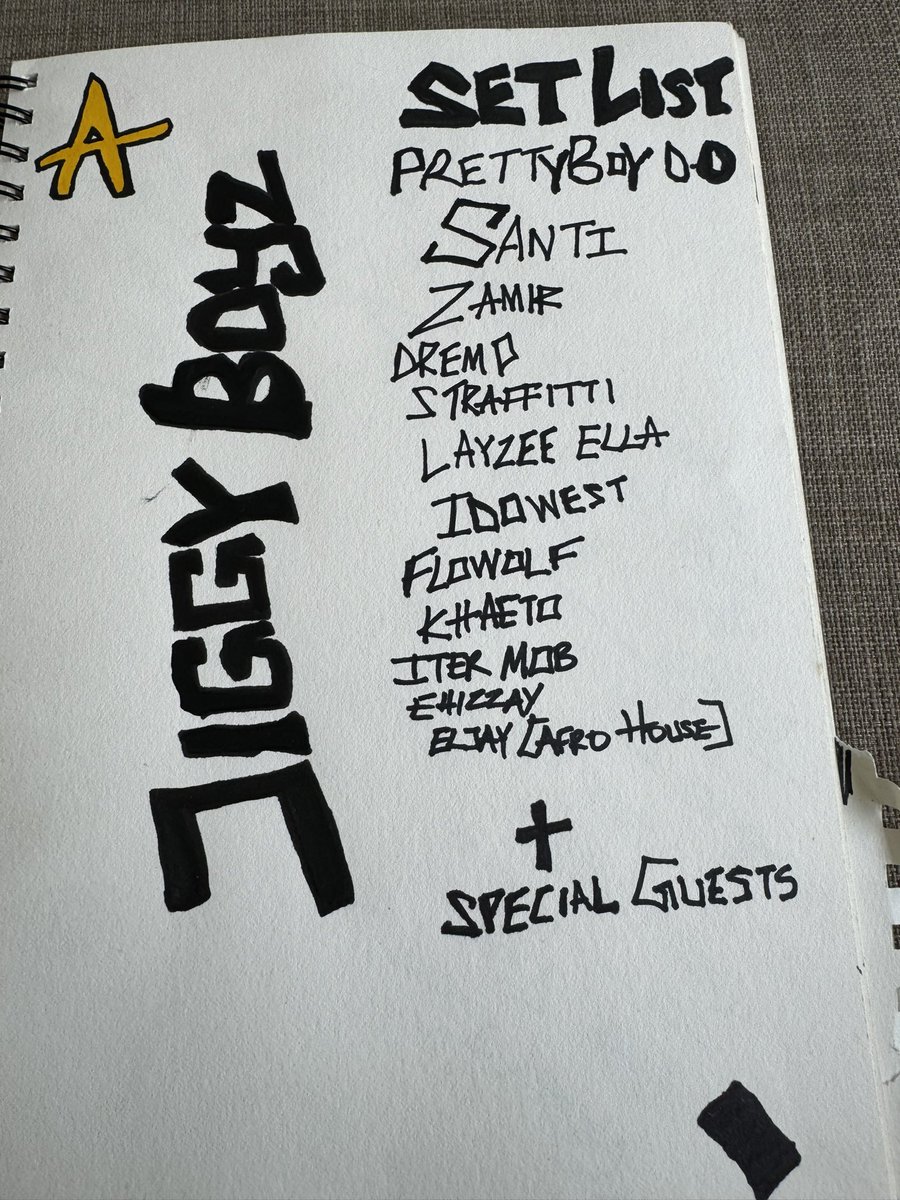 A
JIGGY BOYZ
SET LIST
PRETTYBOY D-O
SANTI
ZAMIR
DREMO
STRAFFITTI
LAYZEE ELLA
IDOWEST
FLOWOLF
KHAETO
ITER MOB
EHIZZAY
ELJAY [AFRO HOUSE]
+
SPECIAL GUESTS